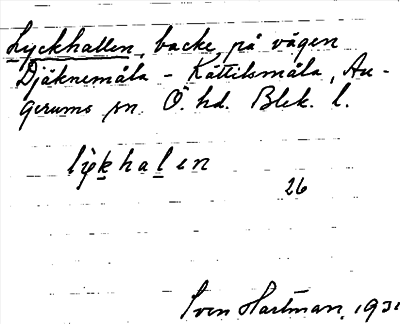 Lyckhallen, backe på vägen
Djäknemåla - Kättilsmåla, Au-
gerums sn. Ö. hd. Blek. l.
lỳkhalen
26
Sven Hartman, 193